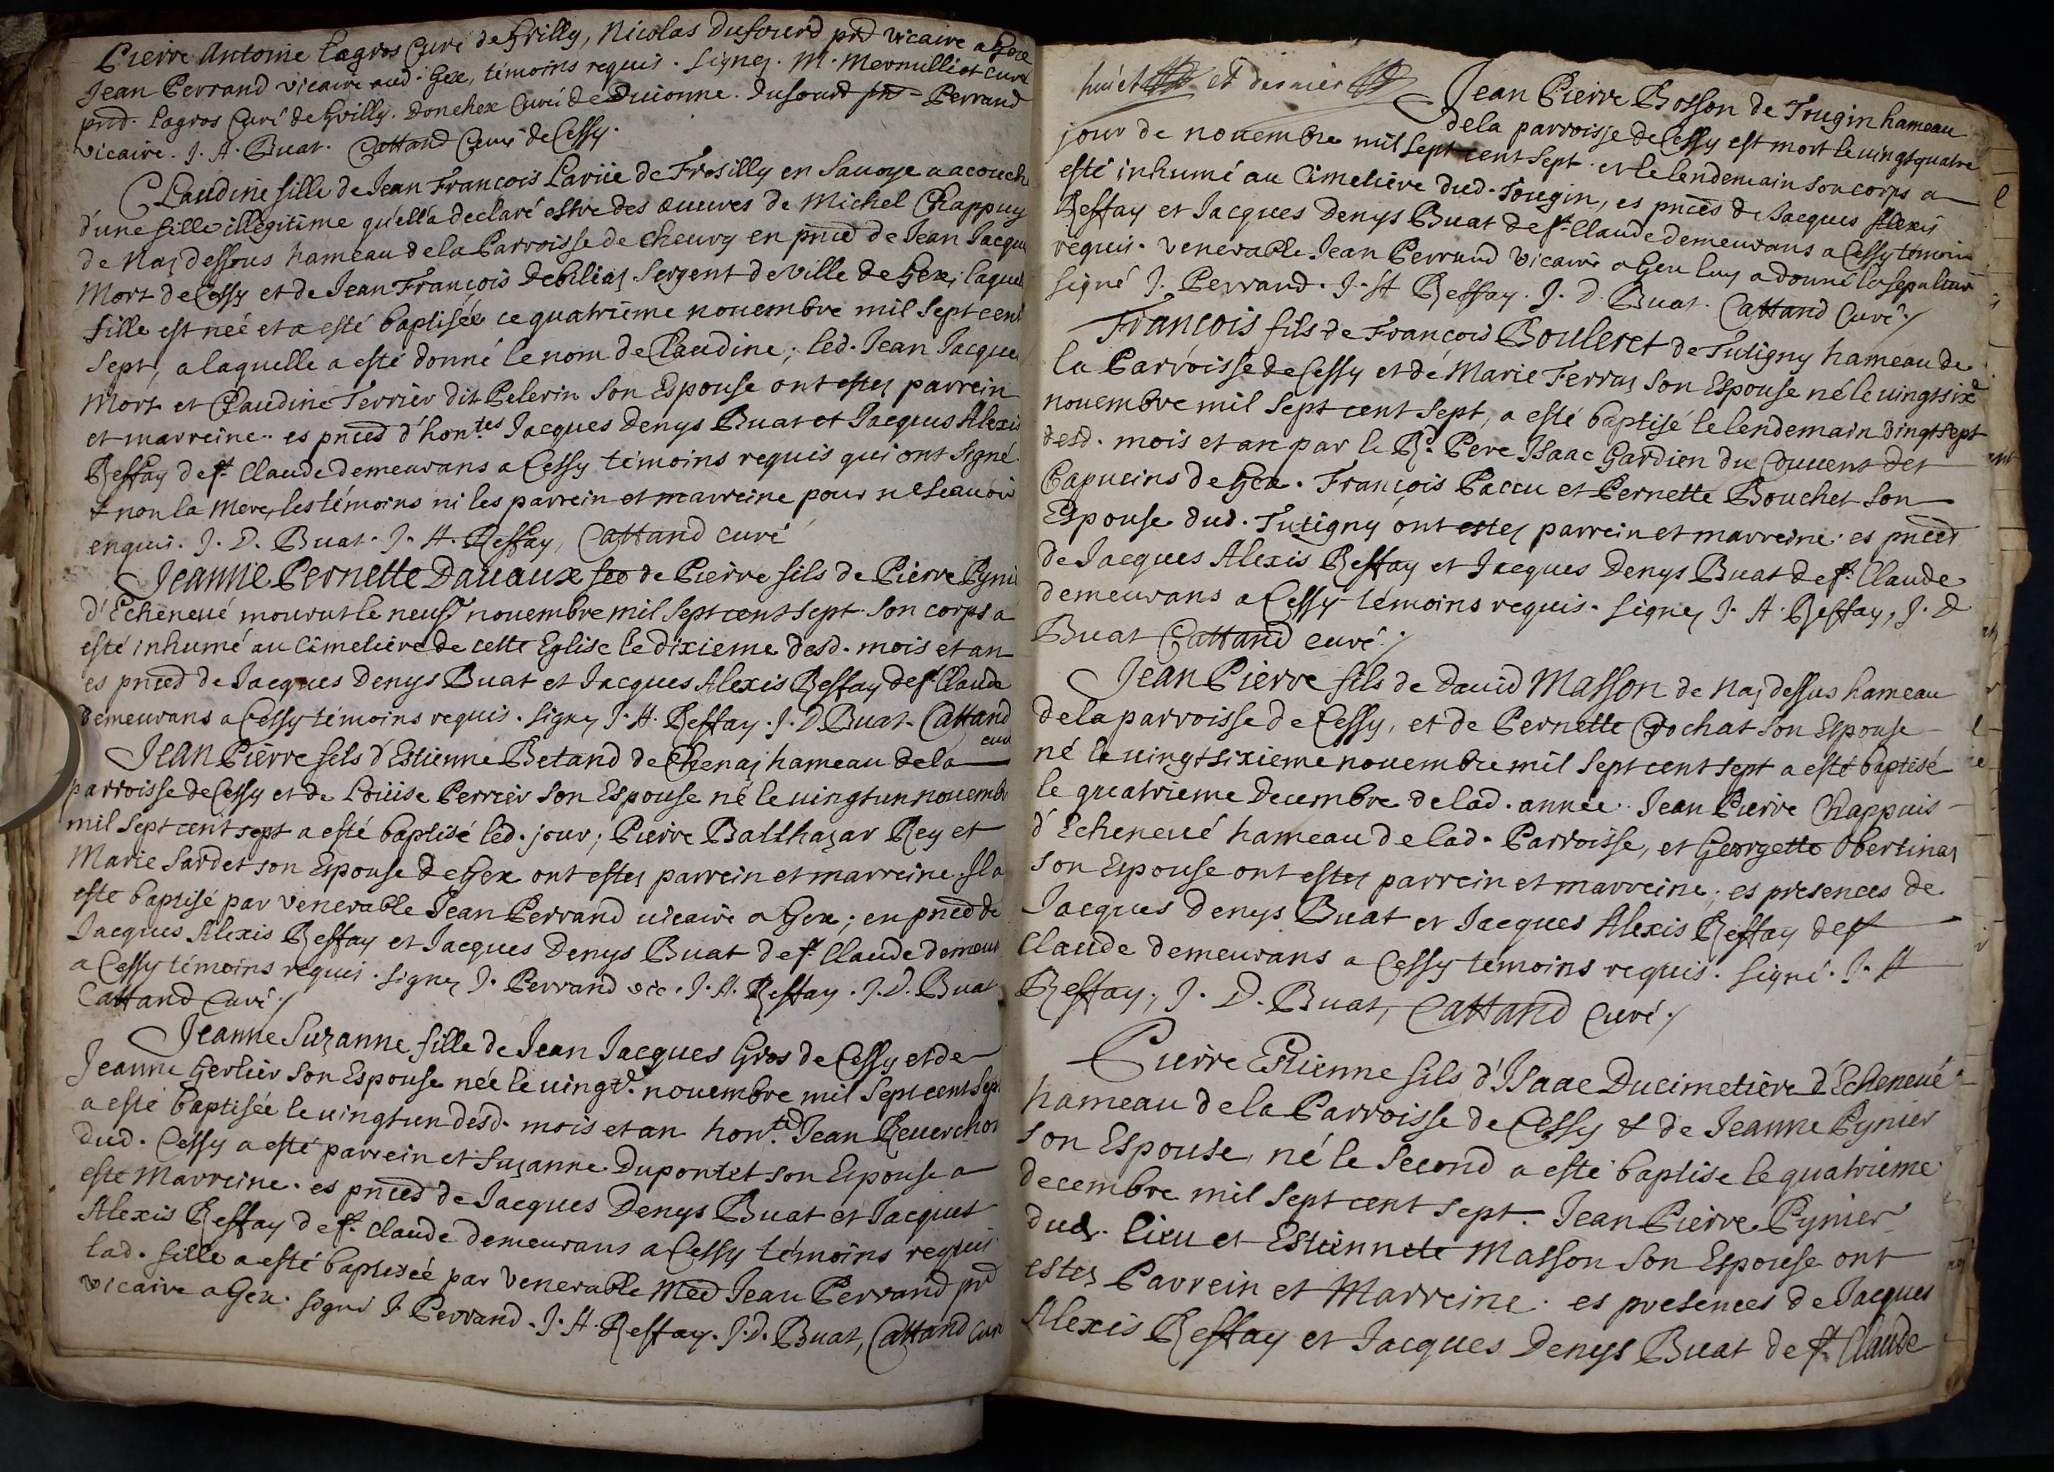 Pierre Antoine Lagros Curé de Grilly, Nicolas Dufourd prd vicaire a Gex
Jean Perrand vicaire aud. Gex, témoins requis. Signez. M. Mermilliot curé
prd. Lagros Curé de Grilly. Donchex Curé de Divonne. Dufourd prd Perrand
vicaire. J. A. Buat. Cattand Curé de Cessy.
Claudine fille de Jean François Lariie de Frosilly en Savoye a acouch
d'une fille illegitime qu'ell'a declaré estre des œuvres de Michel Chappuy
de Naz dessous hameau de la Parroisse de Chevry en pnce de Jean Jacque
Mort de Cessy et de Jean François Debiliaz Sergent de ville de Gex; laque
fille est neé et a esté baptisée ce quatrième novembre mil sept cent
sept, a laquelle a esté donné le nom de Claudine; led. Jean Jacque
Mort et Claudine Terrier dit Pelerin son Espouse ont estez parrein
et marreine. es pnces d'hon.tes Jacques Denys Buat et Jacques Alexis
Reffay de St Claude demeurans a Cessy témoins requis qui ont signé
& non la Mere, les témoins ni les parrein et marreine pour ne scavoir
enquis. J. D. Buat. J. A. Reffay, Cattand curé
Jeanne Pernette Davaux feo de Pierre fils de Pierre Pyni
d'Echenevé mourut le neuf novembre mil sept cent sept. son corps a
esté inhumé au Cimetiere de cette Eglise le dixieme desd. mois et an
es pnces de Jacques Denys Buat et Jacques Alexis Reffay de St Claude
demeurans a Cessy témoins requis. Signez J. A. Reffay. J. D. Buat. Cattand
curé
Jean Pierre fils d'Estienne Betand de Chenaz hameau de la
parroisse de Cessy et de Loüise Perrier son Espouse né le vingtun novemb
mil sept cent sept a esté baptisé led. jour; Pierre Balthazar Rey et
Marie Sardet son Espouse de Gex ont estez parrein et marreine. Il a
esté baptisé par venerable Jean Perrand vicaire a Gex; en pnces de
Jacques Alexis Reffay et Jacques Denys Buat de St Claude demeur
a Cessy témoins requis. Signez J. Perrand vic. J. A. Reffay. J. D. Buat
Cattand Curé
Jeanne Suzanne fille de Jean Jacques Gros de Cessy et de
Jeanne Gerlier son Espouse née le vingt.e novembre mil sept cent sept
a esté baptisée le vingtun desd. mois et an hon.te Jean Reverchon
dud. Cessy a esté parrein et Suzanne Dupontet son Espouse a
esté Marreine. es pnces de Jacques Denys Buat et Jacques
Alexis Reffay de St Claude demeurans a Cessy témoins requis
lad. fille a esté baptiseé par venerable Jean Perrand prd
vicaire a Gex. Signé J. Perrand. J. A. Reffay. J. D. Buat, Cattand curé
et dernier
Jean Pierre Bosson de Tougin hameau
de la parroisse de Cessy est mort le vingtquatre
jour de novembre mil sept cent sept. et le lendemain son corps a
esté inhumé au Cimetière dud. Tougin, es pnces de Jacques Alexis
Reffay et Jacques Denys Buat de St Claude demeurans a Cessy témoin
requis. Venerable Jean Perrand vicaire a Gex luy a donné la sepultur
signé J. Perrand. J. A Reffay. J. D. Buat. Cattand Curé
François fils de François Bouleret de Tutigny hameau de
la Parroisse de Cessy et de Marie Ferraz son Espouse né le vingtsixe
novembre mil sept cent sept, a esté baptisé le lendemain vingtsept
desd. mois et an par le R. Pere Isaac Gardien du Couvent des
Capucins de Gex. François Paccu et Pernette Bouchet son
Espouse dud. Tutigny ont estez parrein et marreine. es pnces
de Jacques Alexis Reffay et Jacques Denys Buat de St Claude
demeurans a Cessy témoins requis. Signez J. A. Reffay, J. D
Buat Cattand curé
Jean Pierre fils de David Masson de Naz dessus hameau
de la parroisse de Cessy, et de Pernette Crochat son Espouse
né le vingtsixieme novembre mil sept cent sept a esté baptisé
le quatrieme Decembre de lad. année. Jean Pierre Chappuis
d'Echenevé hameau de lad. Parroisse, et Georgette Obertinaz
son Espouse ont estez parrein et marreine; es presences de
Jacques Denys Buat et Jacques Alexis Reffay de St
Claude demeurans a Cessy temoins requis. Signé. J. A
Reffay, J. D. Buat, Cattand Curé
Pierre Etienne fils d'Isaac Ducimetière d'Echenevé
hameau de la Parroisse de Cessy & de Jeanne Pynier
son Espouse, né le second a esté baptise le quatrieme
decembre mil sept cent sept. Jean Pierre Pynier
dud. lieu et Estiennete Masson son Espouse ont
estez Parrein et Marreine. es presences de Jacques
Alexis Reffay et Jacques Denys Buat de St Claude